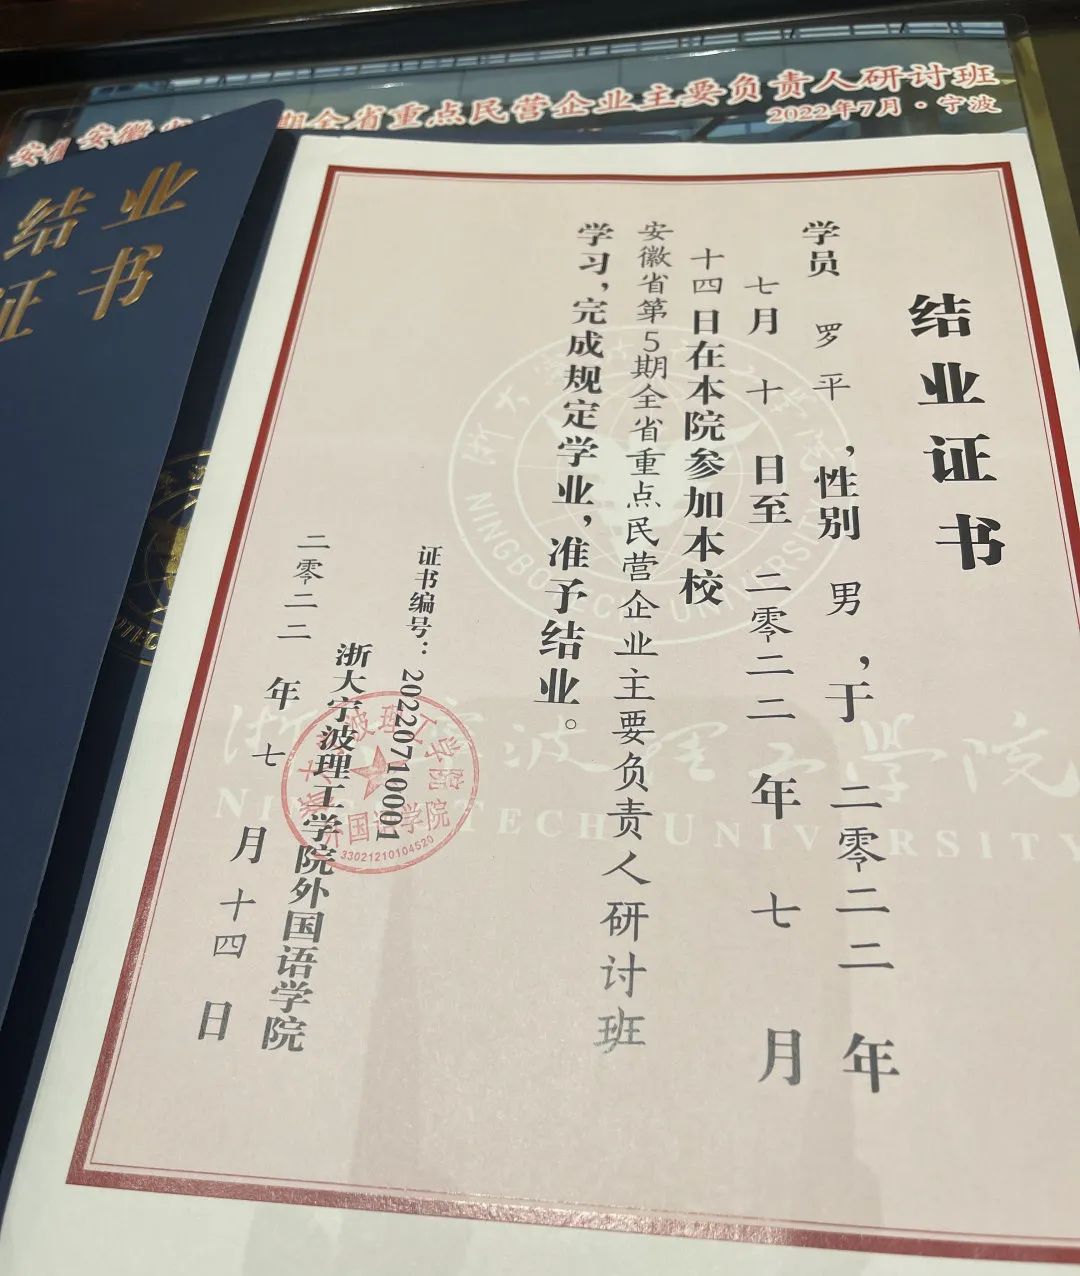 期全省重点民营企业主要负责人研讨班
2022年7月·宁波
结业
证书
结业证书
学员 罗平，性别 男，于 二零二二 年
七月 十 日至 二零二二 年 七 月
十四日在本院参加本校
安徽省第5期全省重点民营企业主要负责人研讨班
学习，完成规定学业，准予结业。
证书编号：20220710001
浙大宁波理工学院外国语学院
二零二二 年 七 月 十四 日
外国语学院
33021210104520
NINGBOTECH UNIVERSITY
浙大宁波理工学院
NINGBOTECH UNIVERSITY